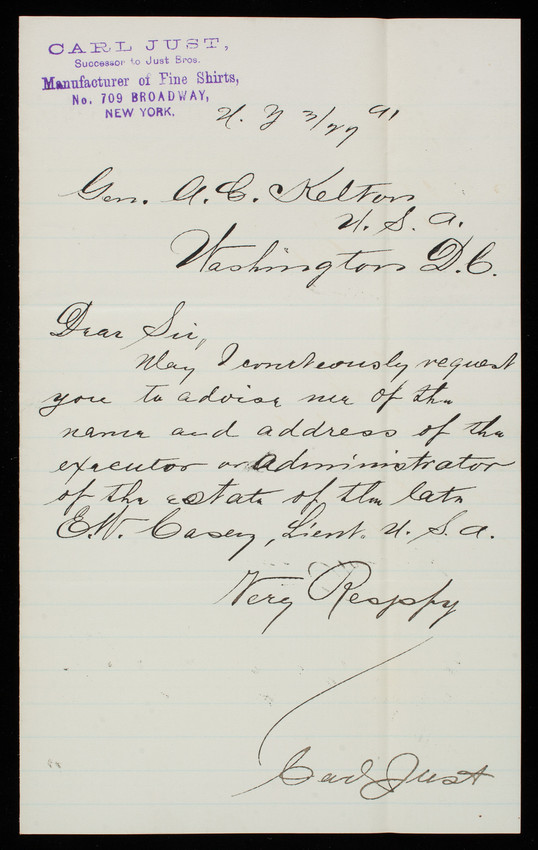 CARL JUST,
Successor to Just Bros.
Manufacturer of Fine Shirts,
No. 709 BROADWAY,
NEW YORK.
N. Y 3/27 91
Gen. A. C. Kelton
U. S. A.
Washington D.C.
Dear Sir,
May I courteously request
you to advise me of the
name and address of the
executor or administrator
of the estate of the late
E.W. Casey, Lieut. U. S. A.
Very Respfy
Carl Just